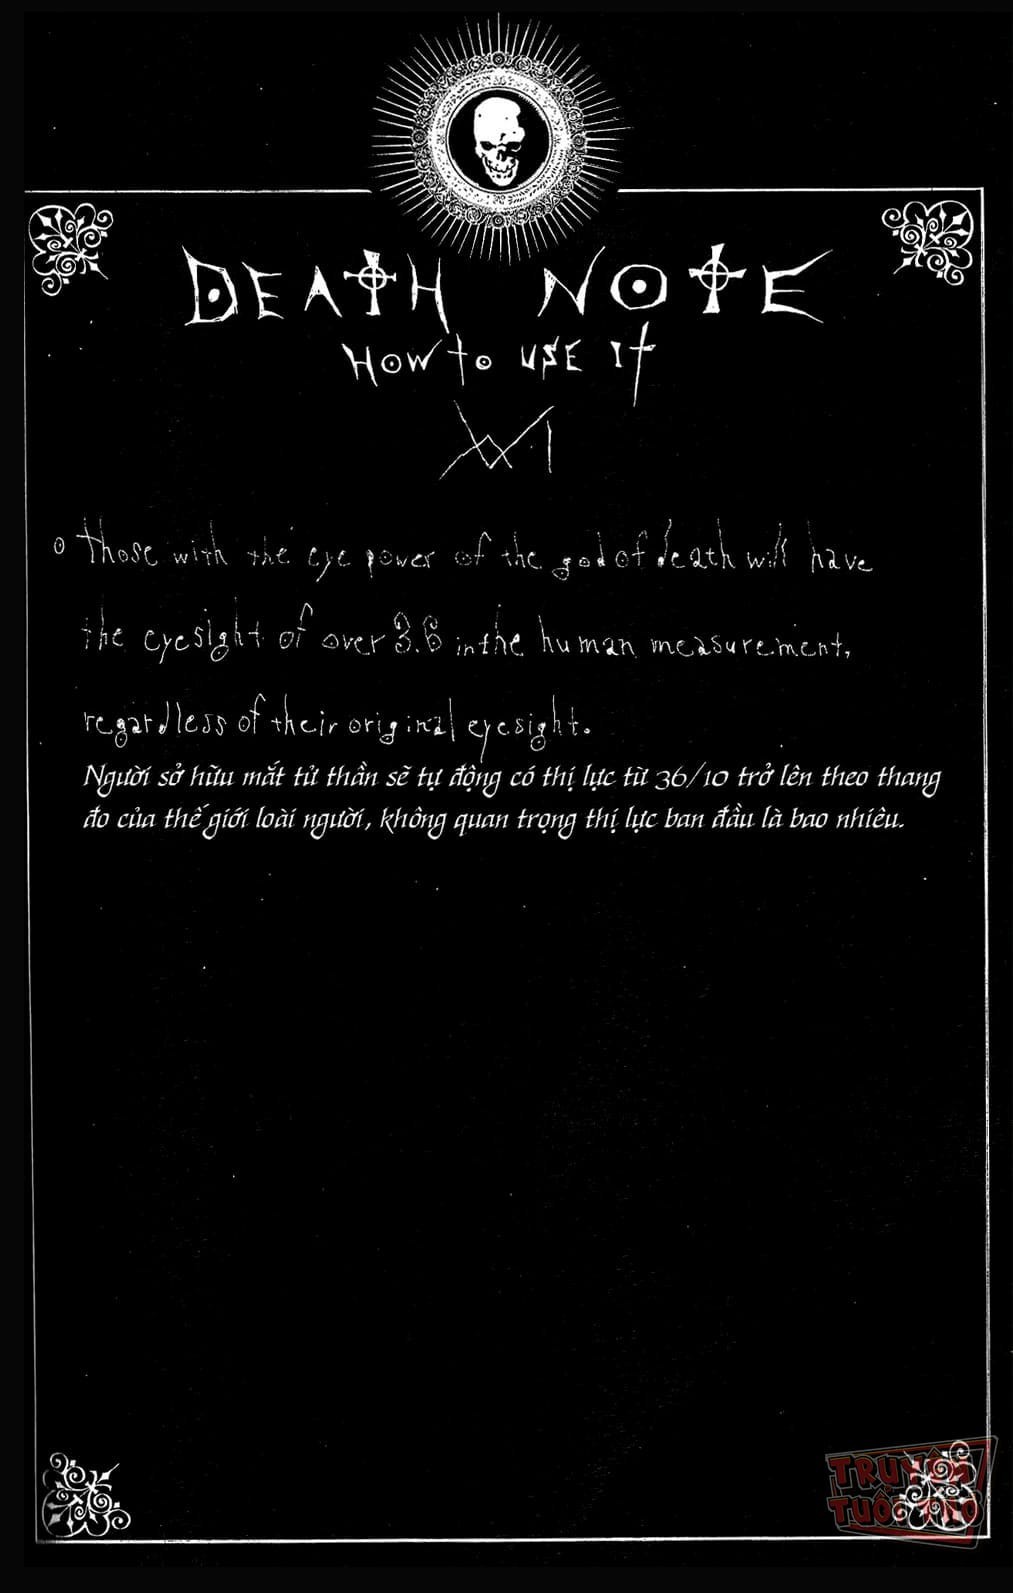 DEATH NOTE
HOW to USE It
XXI
Those with the eye power of the god of death will have
the eyesight of over 3.6 in the human measurement,
regardless of their original eyesight.
Người sở hữu mắt tử thần sẽ tự động có thị lực từ 36/10 trở lên theo thang
đo của thế giới loài người, không quan trọng thị lực ban đầu là bao nhiêu.
TRUYỆN
TUỔI THƠ